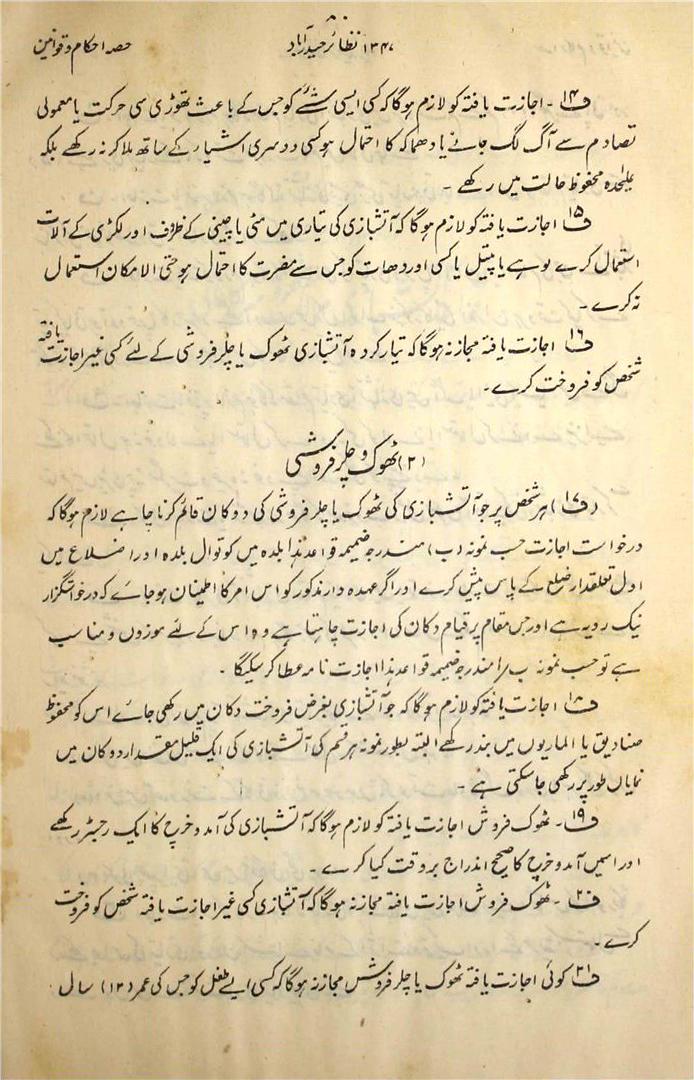 ۸۰
۱۳۴۷ نظائر حیدرآباد
حصہ احکام و قوانین
ف۱۴ - اجازت یافتہ کو لازم ہوگا کہ کسی ایسی شئے کو جس کے باعث تھوڑی سی حرکت یا معمولی
تصادم سے آگ لگ جانے یا دھماکہ کا احتمال ہو کسی دوسری اشیاء کے ساتھ ملا کر نہ رکھے بلکہ
علیٰحدہ محفوظ حالت میں رکھے -
ف۱۵ اجازت یافتہ کو لازم ہوگا کہ آتشبازی کی تیاری میں مٹی یا چینی کے ظرف اور لکڑی کے آلات
استعمال کرے لوہے یا پیتل یا کسی اور دھات کو جس سے مضرت کا احتمال ہو حتی الامکان استعمال
نہ کرے -
ف۱۶ اجازت یافتہ مجاز نہ ہوگا کہ تیار کردہ آتشبازی ٹھوک یا چلر فروشی کے لئے کسی غیر اجازت یافتہ
شخص کو فروخت کرے -
(۲) ٹھوک و چلر فروشی
(ف۱۷) ہر شخص پر جو آتشبازی کی ٹھوک یا چلر فروشی کی دوکان قائم کرنا چاہے لازم ہوگا کہ
درخواست اجازت حسب نمونہ (ب) مندرجہ ضمیمہ قواعد ہذا بلدہ میں کوتوال بلدہ اور اضلاع میں
اول تعلقدار ضلع کے پاس پیش کرے اور اگر عہدہ دار مذکور کو اس امر کا اطمینان ہوجائے کہ درخواستگزار
نیک رویہ ہے اور جس مقام پر قیام دکان کی اجازت چاہتا ہے وہ اس کے لئے موزوں و مناسب
ہے تو حسب نمونہ ب مندرجہ ضمیمہ قواعد ہذا اجازت نامہ عطا کر سکیگا -
ف۱۸ اجازت یافتہ کو لازم ہوگا کہ جو آتشبازی بغرض فروخت دکان میں رکھی جائے اس کو محفوظ
صنادیق یا الماریوں میں بند رکھے البتہ بطور نمونہ ہر قسم کی آتشبازی کی ایک قلیل مقدار دوکان میں
نمایاں طور پر رکھی جاسکتی ہے -
ف۱۹ - ٹھوک فروش اجازت یافتہ کو لازم ہوگا کہ آتشبازی کی آمد و خرچ کا ایک رجسٹر رکھے
اور اسمیں آمد و خرچ کا صحیح اندراج بروقت کیا کرے -
ف۲۰ - ٹھوک فروش اجازت یافتہ مجاز نہ ہوگا کہ آتشبازی کسی غیر اجازت یافتہ شخص کو فروخت
کرے -
ف۲۱ کوئی اجازت یافتہ ٹھوک یا چلر فروش مجاز نہ ہوگا کہ کسی ایسے طفل کو جس کی عمر (۱۲) سال